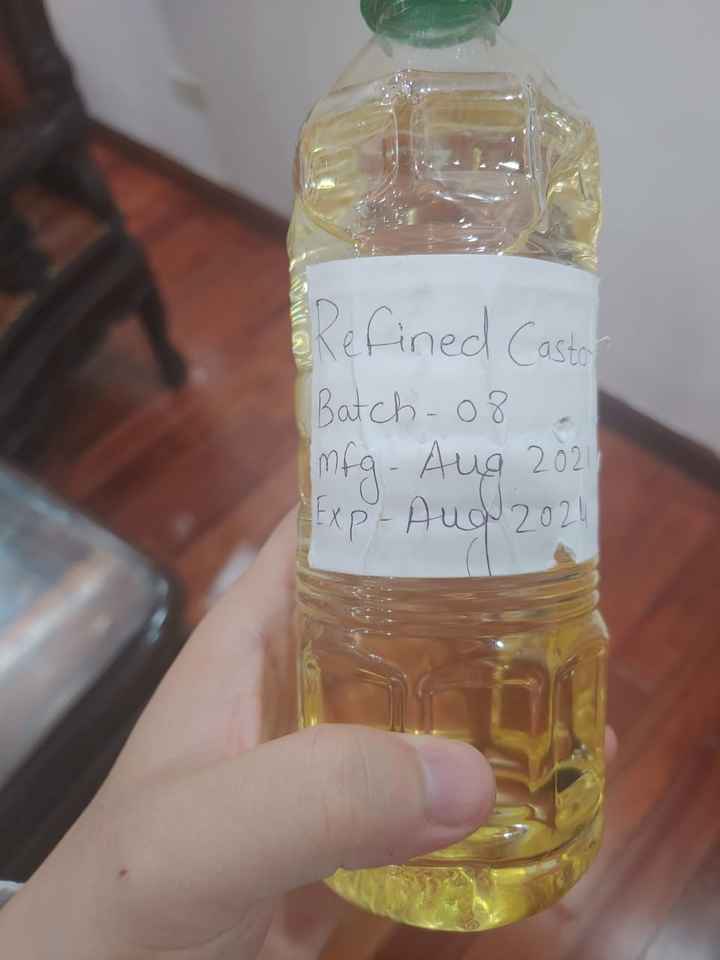 Refined Castor
Batch - 08
mfg - Aug 2021
Exp - Aug 2024